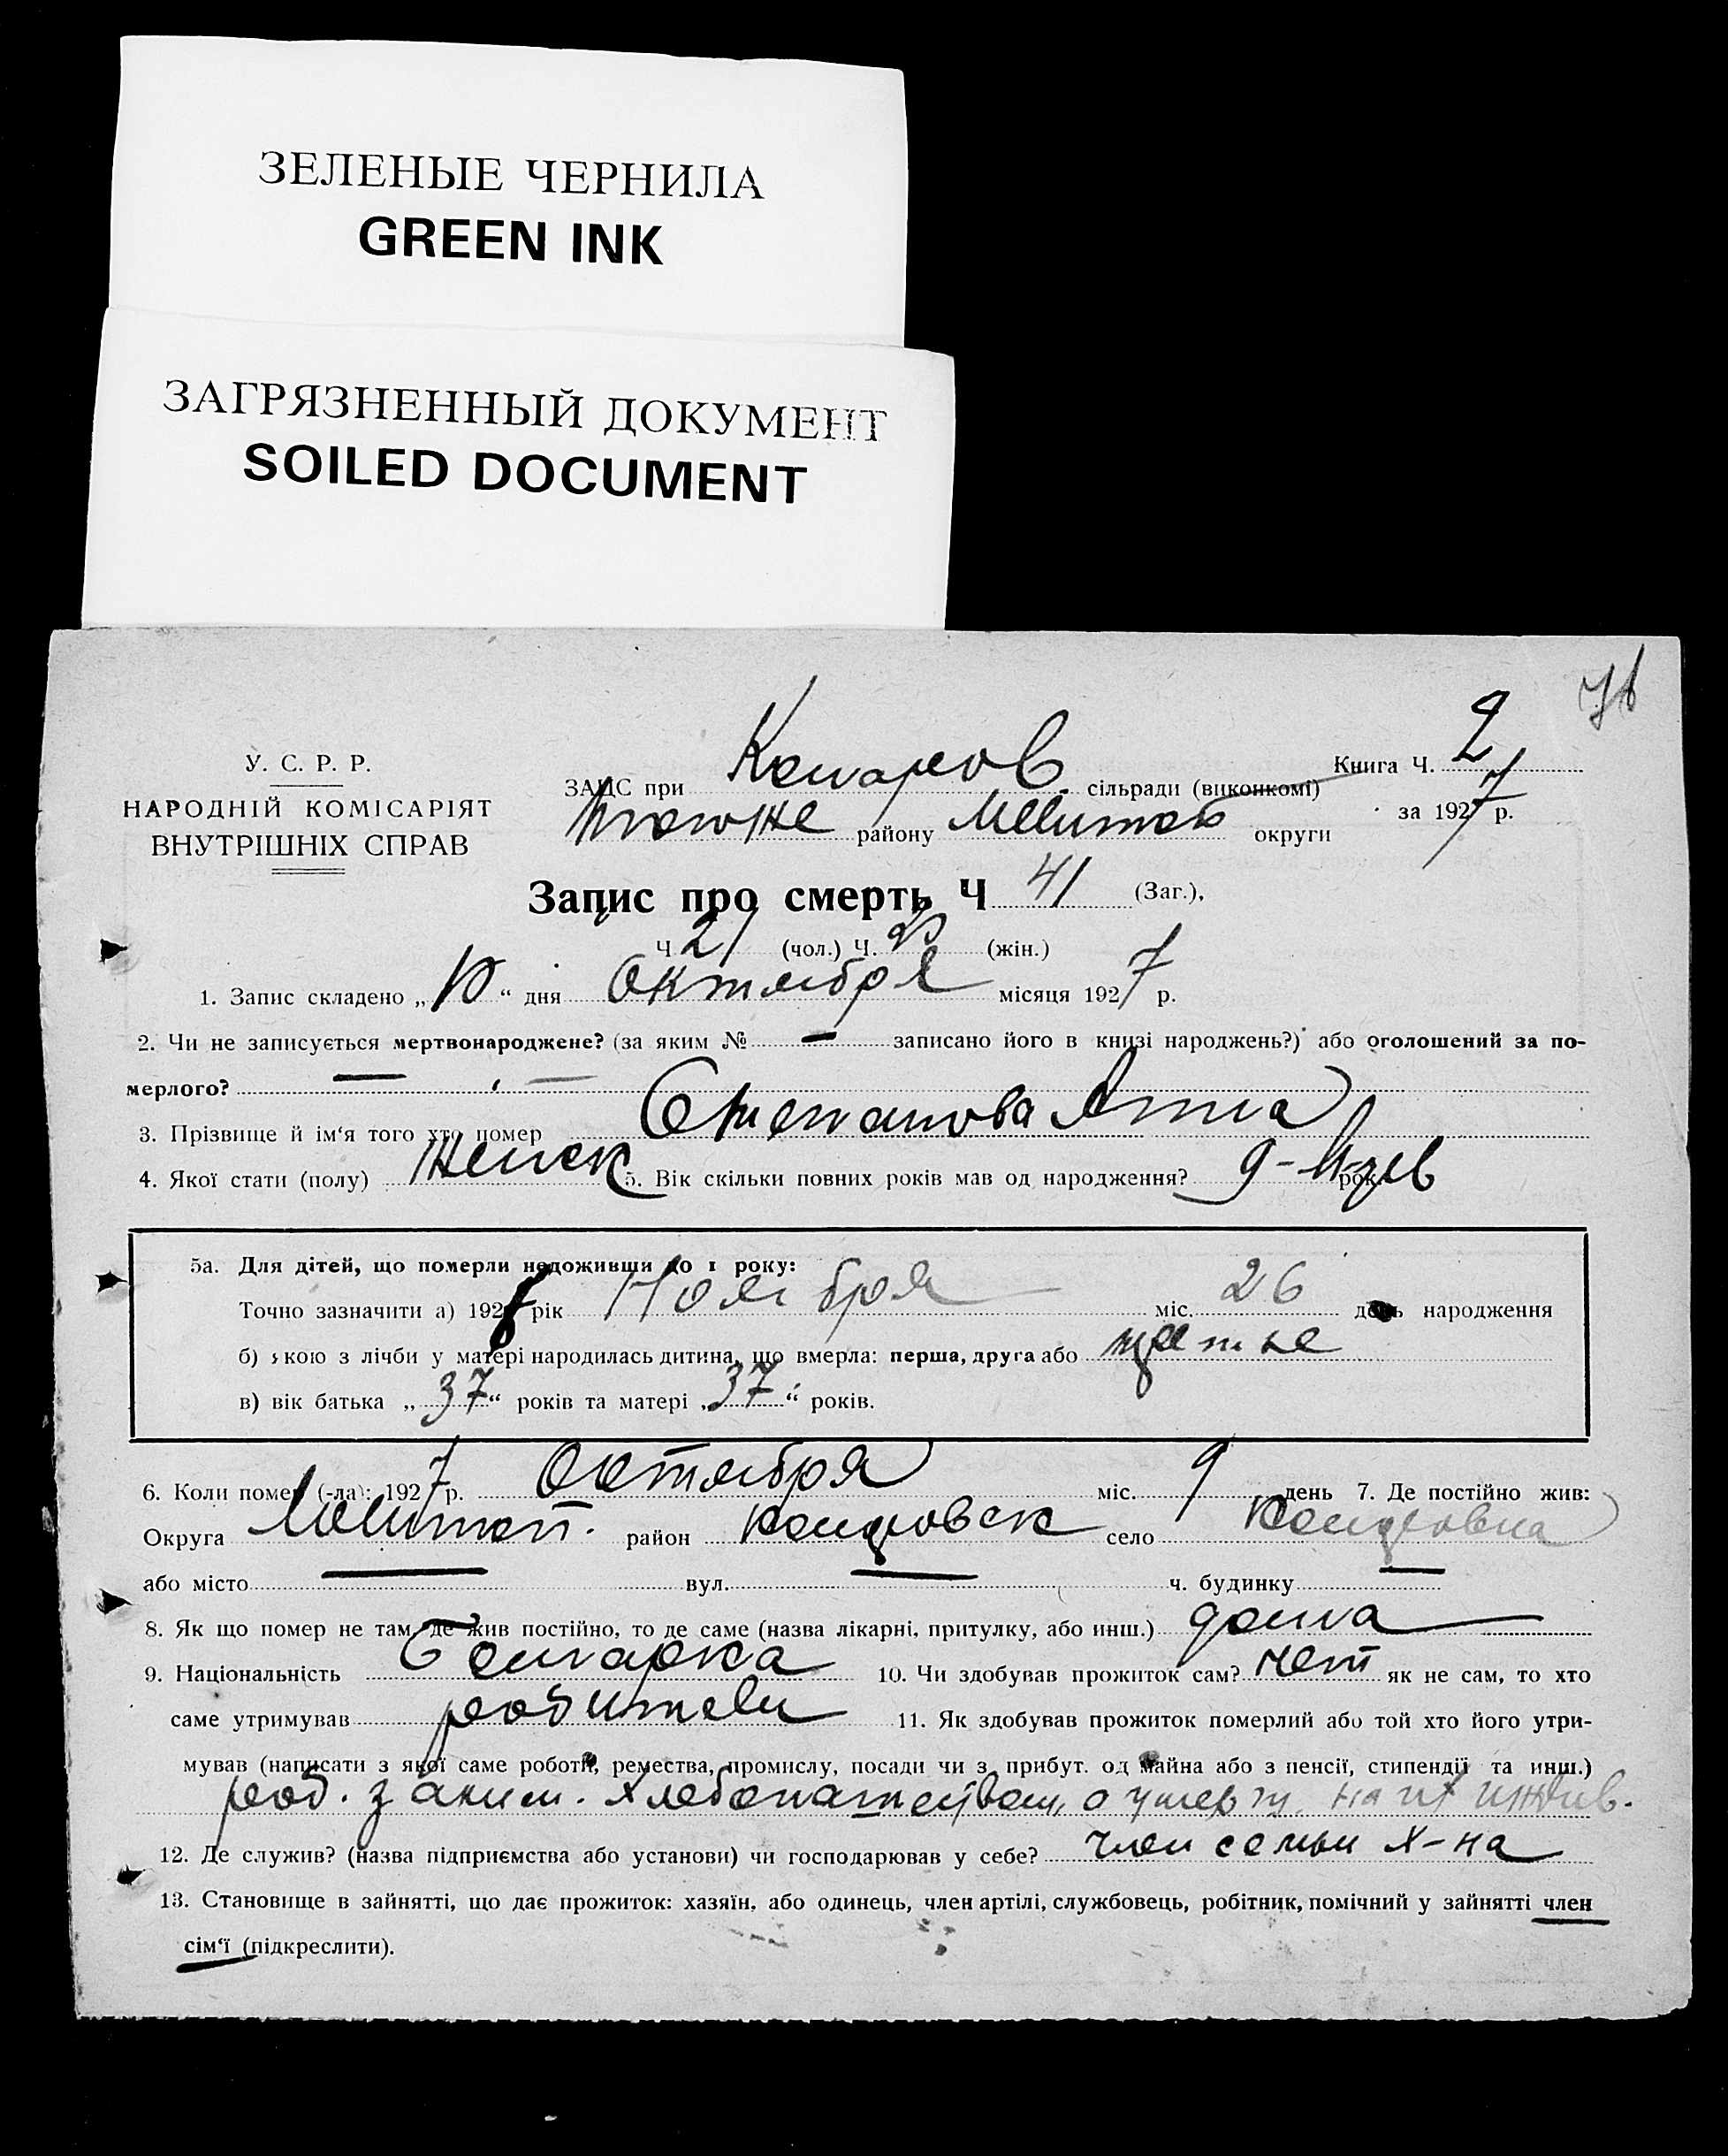 ЗЕЛЕНЫЕ ЧЕРНИЛА
GREEN INK
ЗАГРЯЗНЕННЫЙ ДОКУМЕНТ
SOILED DOCUMENT
У. С. Р. Р.
НАРОДНІЙ КОМІСАРІЯТ
ВНУТРІШНІХ СПРАВ
ЗАГС при сільради (виконкомі)
Книга Ч. 2
району округи
за 1927 р.
Запис про смерть Ч 41 (Заг.),
Ч 21 (чол.) Ч. 20 (жін.)
1. Запис складено „10“ дня Октября місяця 1927 р.
2. Чи не записується мертвонароджене? (за яким № — записано його в книзі народжень?) або оголошений за по-
мерлого? — —
3. Прізвище й ім‘я того хто помер Степанова Анна
4. Якої стати (полу) Женск 5. Вік скільки повних років мав од народження? рок
5а. Для дітей, що померли недоживши до 1 року:
Точно зазначити а) 192 рік Ноября міс. 26 день народження
б) якою з лічби у матері народилась дитина, що вмерла: перша, друга або
в) вік батька „37“ років та матері „37“ років.
6. Коли помер (-ла): 1927 р. Октября міс. 9 день 7. Де постійно жив:
Округа Мелитоп. район село
або місто — вул. — ч. будинку —
8. Як що помер не там, де жив постійно, то де саме (назва лікарні, притулку, або инш.) дома
9. Національність Болгарка 10. Чи здобував прожиток сам? нет як не сам, то хто
саме утримував родители 11. Як здобував прожиток померлий або той хто його утри-
мував (написати з якої саме роботи, ремества, промислу, посади чи з прибут. од майна або з пенсії, стипендії та инш.)
род. заним. хлебопашеством, а умерш. на их иждив.
12. Де служив? (назва підприємства або установи) чи господарював у себе? член семьи х-на
13. Становище в зайнятті, що дає прожиток: хазяїн, або одинець, член артілі, службовець, робітник, помічний у зайнятті член
сім‘ї (підкреслити).